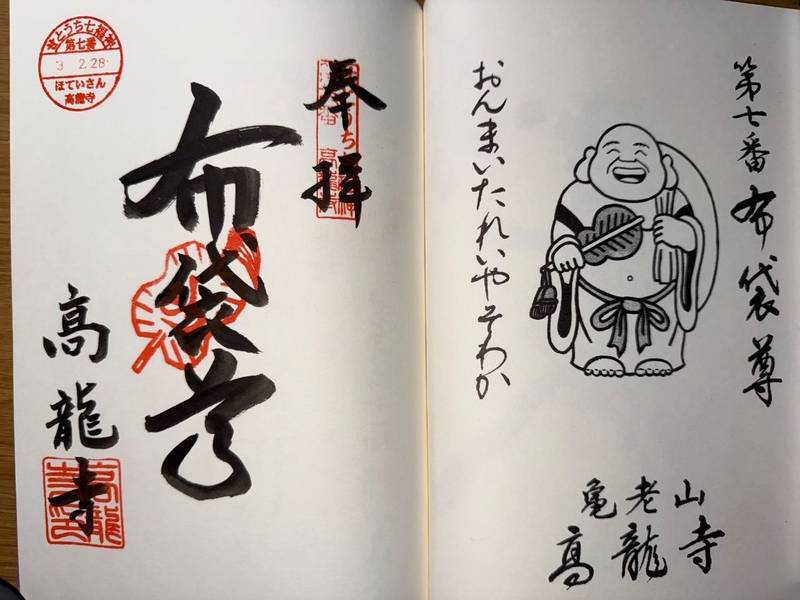 第七番 布袋尊
おんまいたれいやそわか
亀老山
高龍寺
奉拝
布袋尊
高龍寺
せとうち七福神
第七番
3 2.28
ほていさん
高龍寺